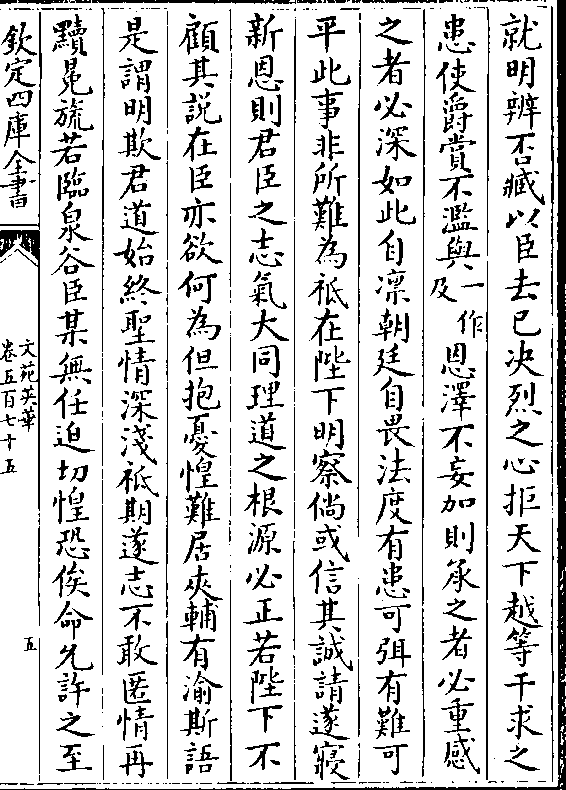 就明辨否臧以臣去已决烈之心拒天下越等干求之
患使爵賞不濫與一作及恩澤不妄加則承之者必重感
之者必深如此自凛朝廷自畏法度有患可弭有難可
平此事非所難為祗在陛下明察倘或信其誠請遂寢
新恩則君臣之志氣大同理道之根源必正若陛下不
顧其説在臣亦欲何為但抱憂惶難居夾輔有渝斯語
是謂明欺君道始終聖情深淺祗期遂志不敢匿情再
黷冕旒若臨泉谷臣某無任迫切惶恐俟命允許之至
欽定四庫全書
文苑英華
卷五百七十五
五